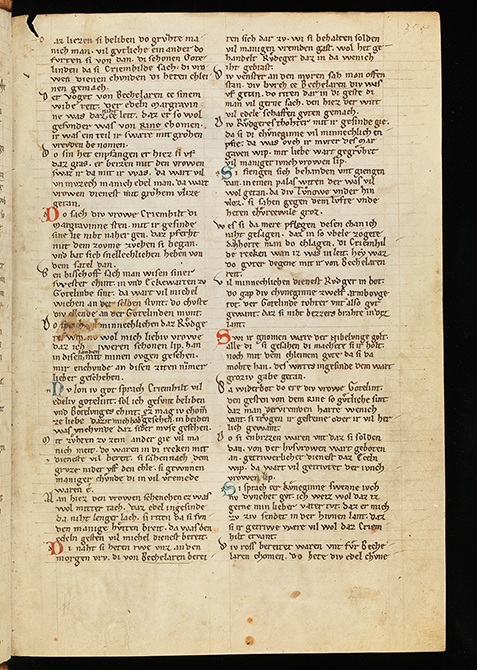 dar liezen si beliben do gruzte ma
nich man. vil gutliche ein ander do
furten si von dan. di schonen Gote
linden da si Criemhilde sach. di vro
wen dienes chunden di heten chlei
nen gemach.
Der voget von Bechelaren ce sinem
wibe reit. der edeln margravin
ne was daz niht leit. daz er so wol
gesunder was von Rine chomen.
ir was ein teil ir swære mit grozen
vreuden benomen.
Do sin het enpfangen er hiez si uf
daz gras. er beizen mit den vrowen
swaz ir da mit ir was. da wart vil
unmuzech manich edel man. da wart
vrowen dienest mit grozem vlize
getan.
Do sach div vrowe Criemhilt di
margravinne sten. mit ir gesinde
sine lie niht naher gen. daz pferit
mit dem zoume zuchen si began.
und bat sich snellechlichen heben von
dem satel dan.
Den bisschoff sach man wisen siner
swester chint. in und Eckewarten zu
Gotelinde sint. da wart vil michel
wichen an der selben stunt. do chuste
div ellende an der Gotelinden munt.
Do sprach vil minnechlichen daz Rudge
res wip. nu wol mich liebiu vrowe
daz ich iweren schonen lip. han
in disen landen mit minen ougen gesehen.
mir enchunde an disen ziten nimmer
lieber geschehen.
Nu lon iv got sprach Criemhilt vil
edeliv gotelint. sol ich gesunt beliben
und Botelunges chint. ez mag iv chomen
ze liebe daz ir mich habt gesehen. in beiden
was unchunde daz sider muse geschehen.
Mit zuhten zu zein ander gie vil ma
nich meit. do waren in di recken mit
dieneste vil bereit. si sazen nach dem
gruze nider uf den chle. si gewunnen
maniger chunde di in vil vremede
waren e.
Man hiez den vrowen schenchen ez was
wol mitter tach. daz edel ingesinde
da niht lenger lach. si riten da si fun
den manige hutten breit. da was den
edeln gesten vil michel dienest bereit.
Di naht si heten rwe unz an den
morgen vru. di von Bechelaren berei
ten sich dar zu. wi si behalten solden
vil manigen vremden gast. wol het ge
handelt Rudeger daz in da wench
iht gebrast.
Div venster an den muren sah man offen
stan. div burch ce Bechelaren div was
uf getan. do riten dar in di geste di
man vil gerne sach. den hiez der wirt
vil edele schaffen guten gemach.
Div Rudegeres tohter mit ir gesinde gie.
da si di chuneginne vil minnechlich en
pfie. da was ouch ir muter des mar
graven wip. mit liebe wart gegruzet
vil maniget iunch vrowen lip.
Si viengen sich behanden unt giengen
dan. in einen palas witen der was vil
wol getan. da div Tunowe under hin
vloz. si sazen gegen dem lufte unde
heten churcewile groz.
Wes si da mere pflegen desen chan ich
niht gesagen. daz in so ubele zogete
da horte man do chlagen. di Criemhil
de recken wan iz was in leit. hey waz
do guter degene mit ir von Bechelaren
reit.
Vil minnechlichen dienest Rudger in bot.
do gap div chuneginne zwelf armbouge
rot. der Gotelinde tohter unt also gut
gewant. daz si niht bezzers brahte in daz
lant.
Swi ir genomen wære der Nibelunge golt.
alle di si gesahen di machete si ir holt.
noch mit dem chleinem gute daz si da
mohte han. des wirtes ingesinde dem wart
groziv gabe getan.
Da widerbot do ere div vrowe Gotelint.
den gesten von dem Rine so gutliche sint.
daz man der vremden harte wenich
vant. si trugen ir gesteine oder ir vil her
lich gewant.
Do si enbizzen waren unt daz si solden
dan. von der husvrowen wart geboten
an. getriwerlicher dienest daz Ecceln
wip. da wart vil getriutet der iunch
vrowen lip.
Si sprach cer kuneginne swenne iuch
nu dunchet gut. ich weiz wol daz iz
gerne min lieber vater tut. daz er mich
zu ziv sendet in der Hiunen lant. daz
si ir getriwe wære vil wol daz Criem
hilt ervant.
Div ross bereitet waren unt fur Beche
laren chomen. do hete div edel chune